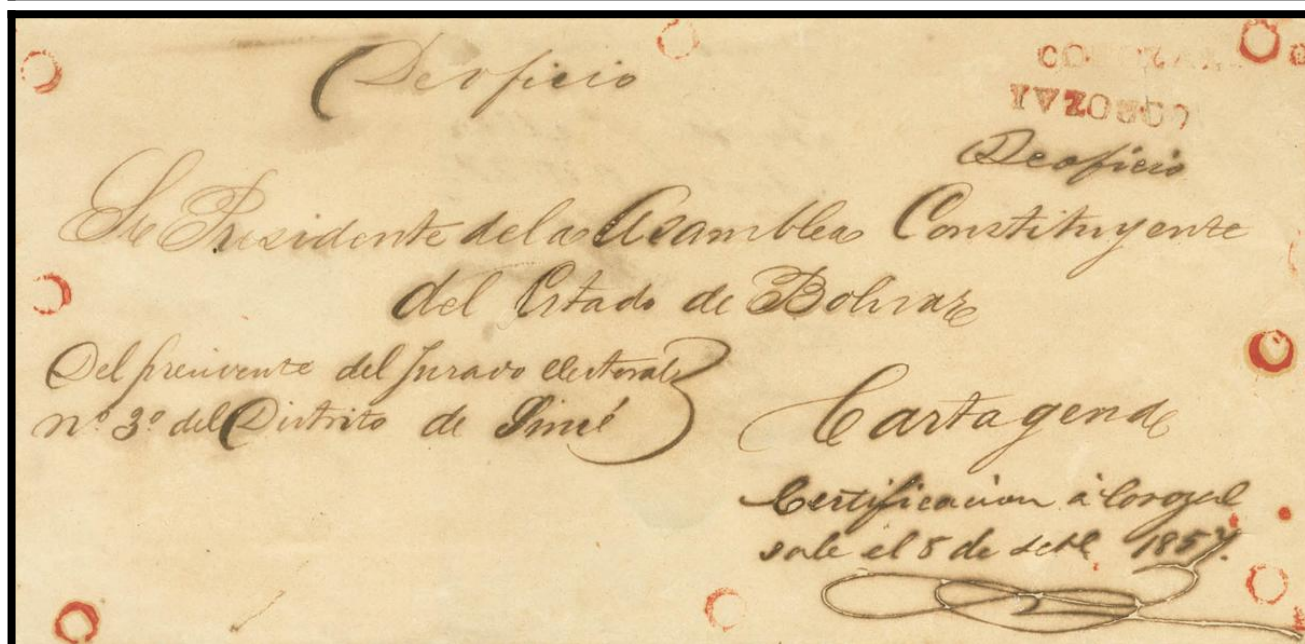 De oficio
De oficio
Sr Presidente de la Asamblea Constituyente
del Estado de Bolivar
Del presidente del Jurado electoral
nº 3º del Distrito de Sincé
Cartagena
Certificacion á Corozal
sale el 8 de setbe 1857.